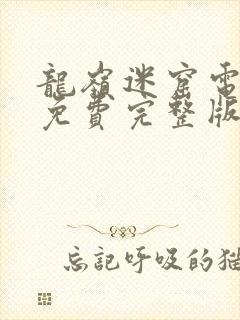 龍嶺迷窟電
免費完整版
忘記呼吸的猫